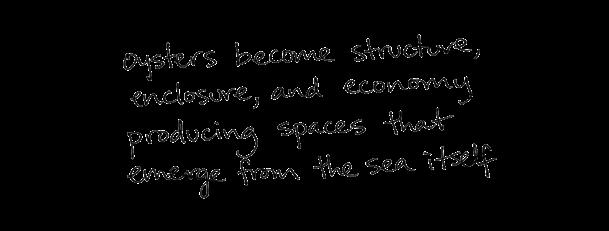 oysters become structure,
enclosure, and economy
producing spaces that
emerge from the sea itself